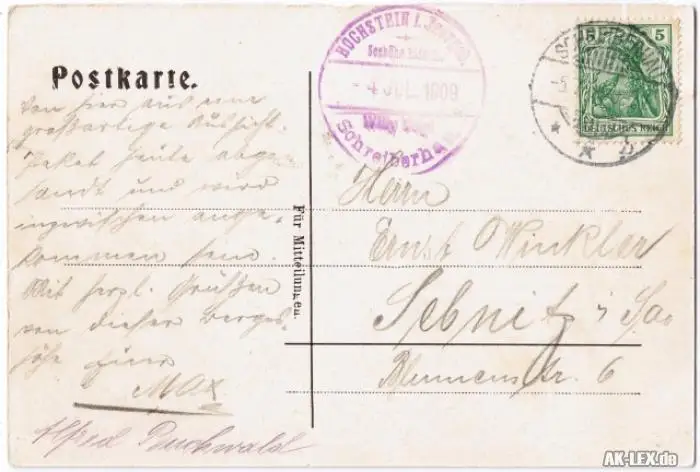 Postkarte.
Von hier aus eine
großartige Aussicht.
Paket heute abge-
sandt und wird
inzwischen ange-
kommen sein.
Mit herzl. Grüßen
von dieser Berges-
höhe
Max
Alfred Buchwald
Für Mitteilungen.
HOCHSTEIN i. Isergeb.
- 4 JUL. 1909
Schreiberhau
5 5
DEUTSCHES REICH
SCHREIBERHAU
* * b
Herrn
Ernst Winkler
Sebnitz i. Sa
Blumenstr. 6
AK-LEX.de